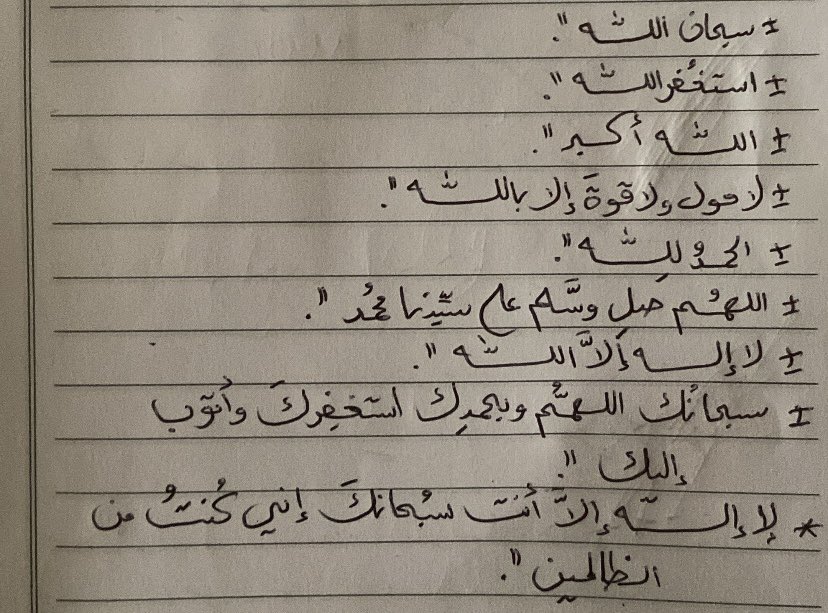 ± سبحان الله ".
± استغفر الله ".
± الله أكبر ".
± لا حول ولا قوة إلا بالله ".
± الحمدُ لله ".
± اللهُم صلِ وسَّلم على سيّدنا محمُد ".
± لا إله إلاَّ الله ".
± سبحانُك اللهمُّ وبحمدِك استغفِركَ وأتوب
إليك ".
* لا إله إلاَّ أنت سبُحانكَ إني كُنتُ من
الظالمين ".